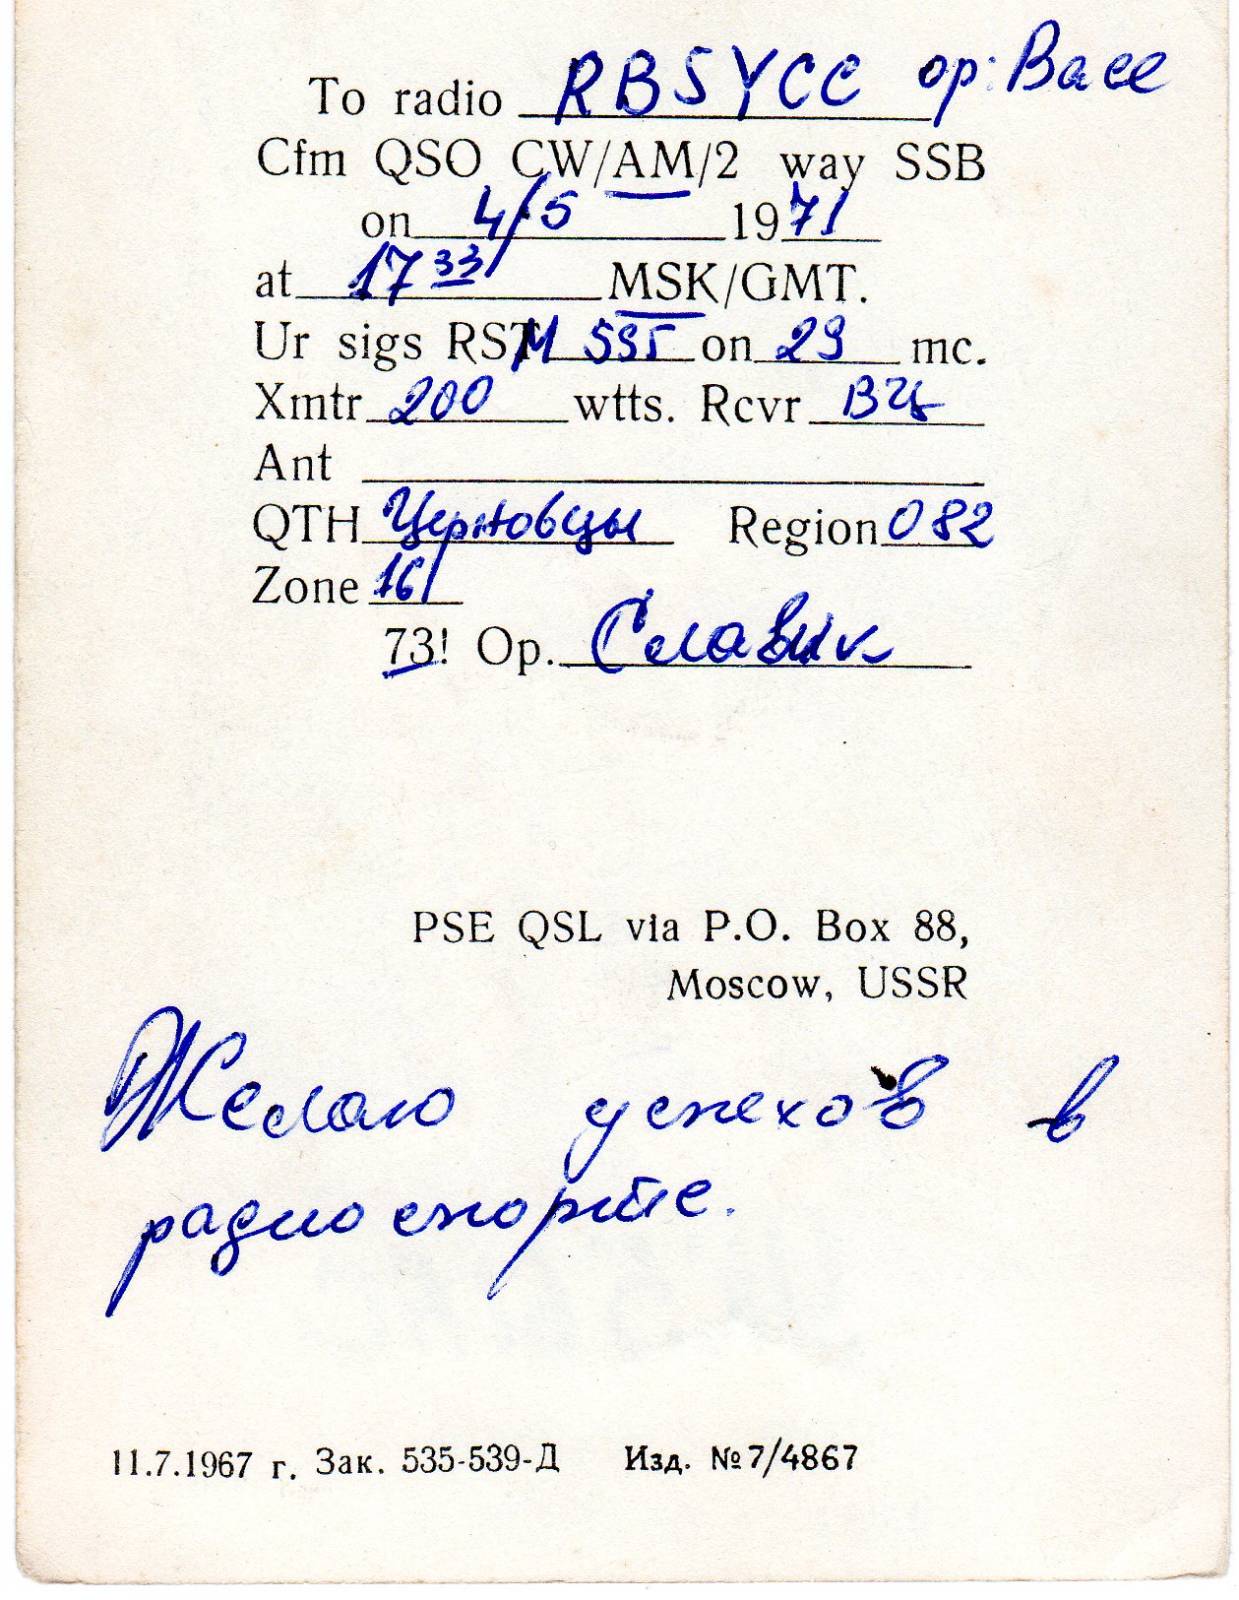 To radio RB5YCC op: Васе
Cfm QSO CW/AM/2 way SSB
on 4/5 1971
at 17 33 MSK/GMT.
Ur sigs RST M 595 on 29 mc.
Xmtr 200 wtts. Rcvr
Ant
QTH Черновцы Region 082
Zone 16
73! Op. Славик
PSE QSL via P.O. Box 88,
Moscow, USSR
Желаю успехов в
радиоспорте.
11.7.1967 г. Зак. 535-539-Д Изд. №7/4867